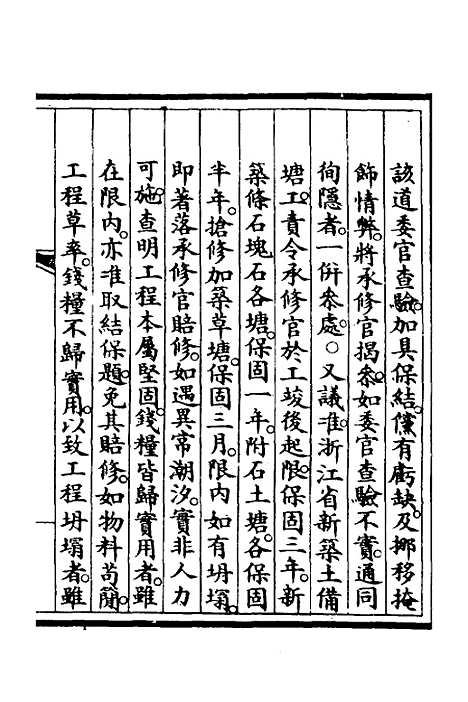 該道委官查驗。加具保結。儻有虧缺。及挪移掩
飾情弊。將承修官揭參。如委官查驗不實。通同
徇隱者。一併叅處。○又議准浙江省新築土備
塘工。責令承修官於工竣後起限。保固三年。新
築條石塊石各塘。保固一年。附石土塘。各保固
半年。搶修加築草塘。保固三月。限内如有坍塌。
即著落承修官賠修。如遇異常潮汐。實非人力
可施。查明工程本屬堅固。錢糧皆歸實用者。雖
在限内。亦准取結保題。免其賠修。如物料苟簡。
工程草率。錢糧不歸實用。以致工程坍塌者。雖